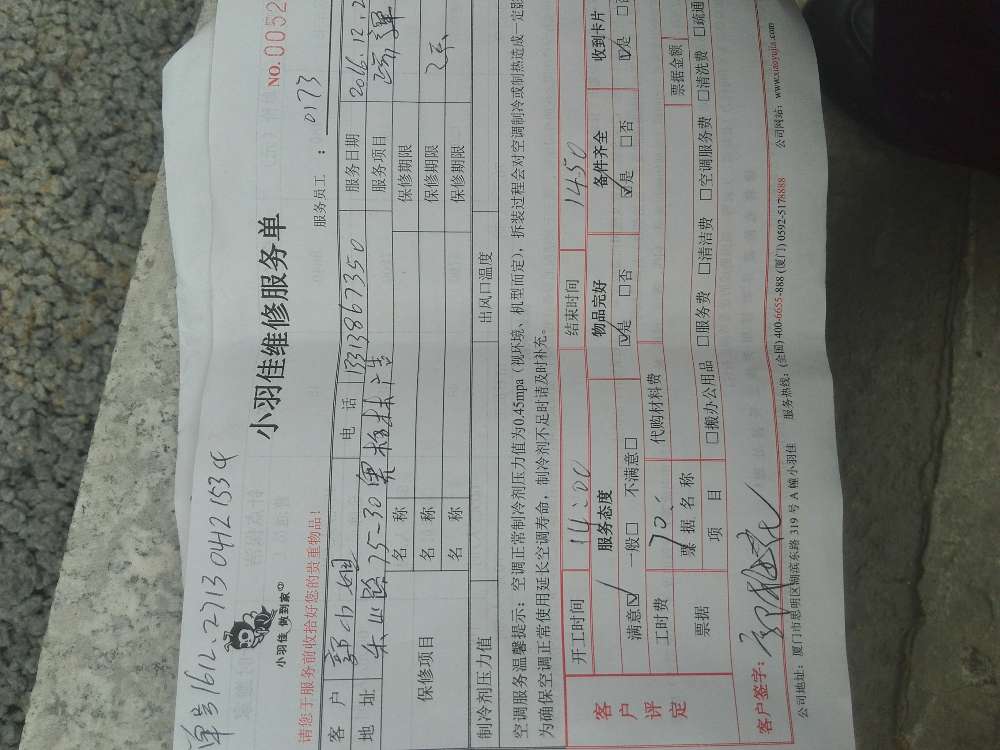 单号1612-2713 0412 1534
小羽佳 做到家
小羽佳维修服务单
NO.0052
请您于服务前收拾好您的贵重物品!
服务员工: 0173
客 户 郭小姐 电 话 13313867350 服务日期 2016.12.2
地 址 75-30 服务项目
保修项目 名 称 保修期限
名 称 保修期限
名 称 保修期限
制冷剂压力值 出风口温度
空调服务温馨提示:空调正常制冷剂压力值为0.45mpa(视环境、机型而定),拆装过程会对空调制冷或制热造成一定影
为确保空调正常使用延长空调寿命,制冷剂不足时请及时补充。
客户评定
开工时间 14:00 结束时间 1450
服务态度 物品完好 备件齐全 收到卡片
满意☑ 一般□ 不满意□ ☑是 □否 ☑是 □否 ☑是
工时费 70. 代购材料费
票据 票据名称 票据金额
项 目 □搬办公用品 □服务费 □清洁费 □空调服务费 □清洗费 □疏通
客户签字:
公司地址:厦门市思明区湖滨东路 319 号 A 幢小羽佳 服务热线:(全国) 400-6655-888 (厦门) 0592-5178888 公司网站:www.xiaoyujia.com